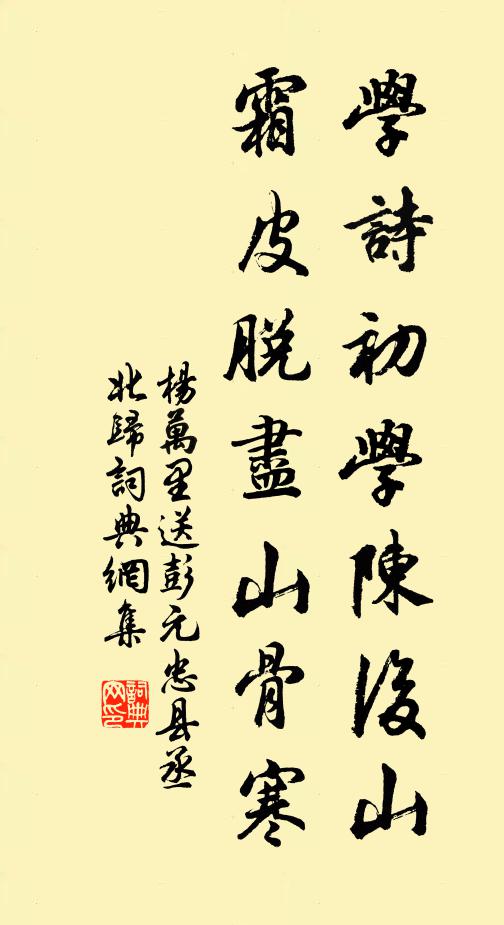 學詩初學陳後山
霜皮脫盡山骨寒
楊萬里送彭元忠县丞
北歸詞典網集
詞典
网印